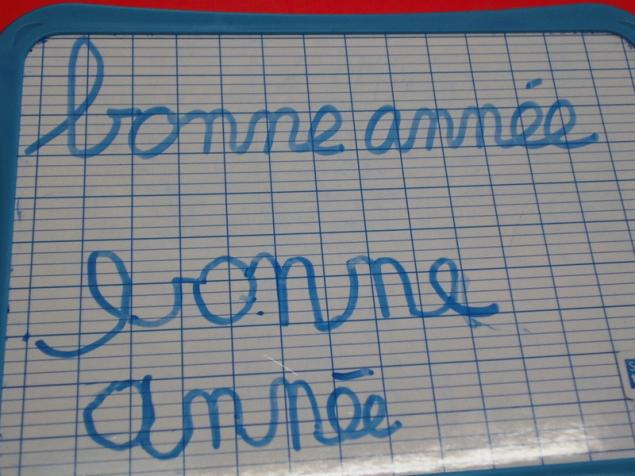 bonne année
bonne
année